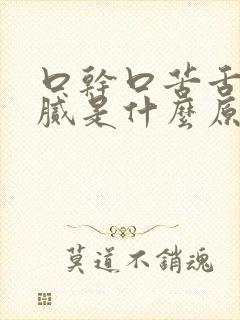 口幹口苦舌
膩是什麼原
莫道不銷魂